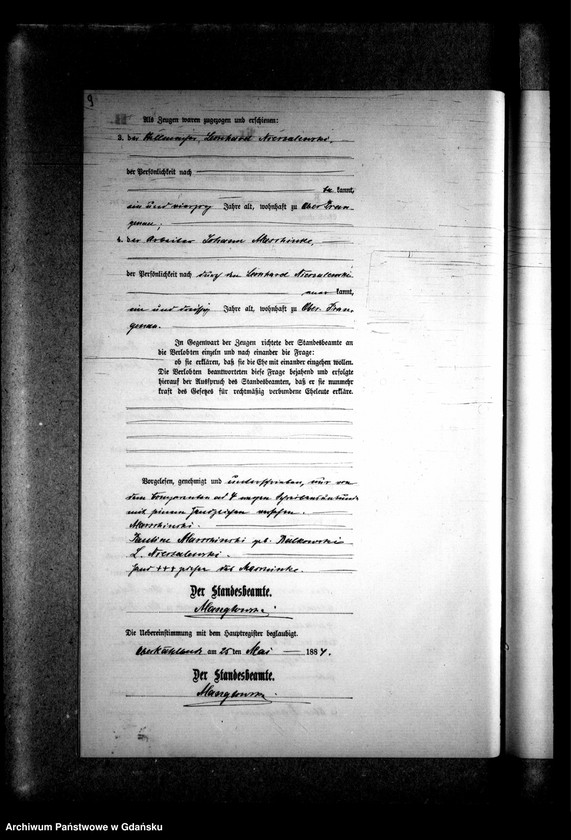 9
Als Zeugen waren zugezogen und erschienen:
3. der Leonhard Nierzalewski,
der Persönlichkeit nach
be kannt,
ein und vierzig Jahre alt, wohnhaft zu Ober Pran-
genau;
4. der Arbeiter Johann
der Persönlichkeit nach durch den Leonhard Nierzalewski
aner kannt,
ein und dreißig Jahre alt, wohnhaft zu Ober Pran-
genau.
In Gegenwart der Zeugen richtete der Standesbeamte an
die Verlobten einzeln und nach einander die Frage:
ob sie erklären, daß sie die Ehe mit einander eingehen wollen.
Die Verlobten beantworteten diese Frage bejahend und erfolgte
hierauf der Ausspruch des Standesbeamten, daß er sie nunmehr
kraft des Gesetzes für rechtmäßig verbundene Eheleute erkläre.
Vorgelesen, genehmigt und unterschrieben, nur von
dem Comparenten ad 4 wegen Schreibensunkunde
mit seinem Handzeichen versehen.
Marschinski.
Pauline Marschinski geb.
L. Nierzalewski.
Hand +++ zeichen des
Der Standesbeamte.
Die Uebereinstimmung mit dem Hauptregister beglaubigt.
am 25 ten Mai 1884.
Der Standesbeamte.
Archiwum Państwowe w Gdańsku